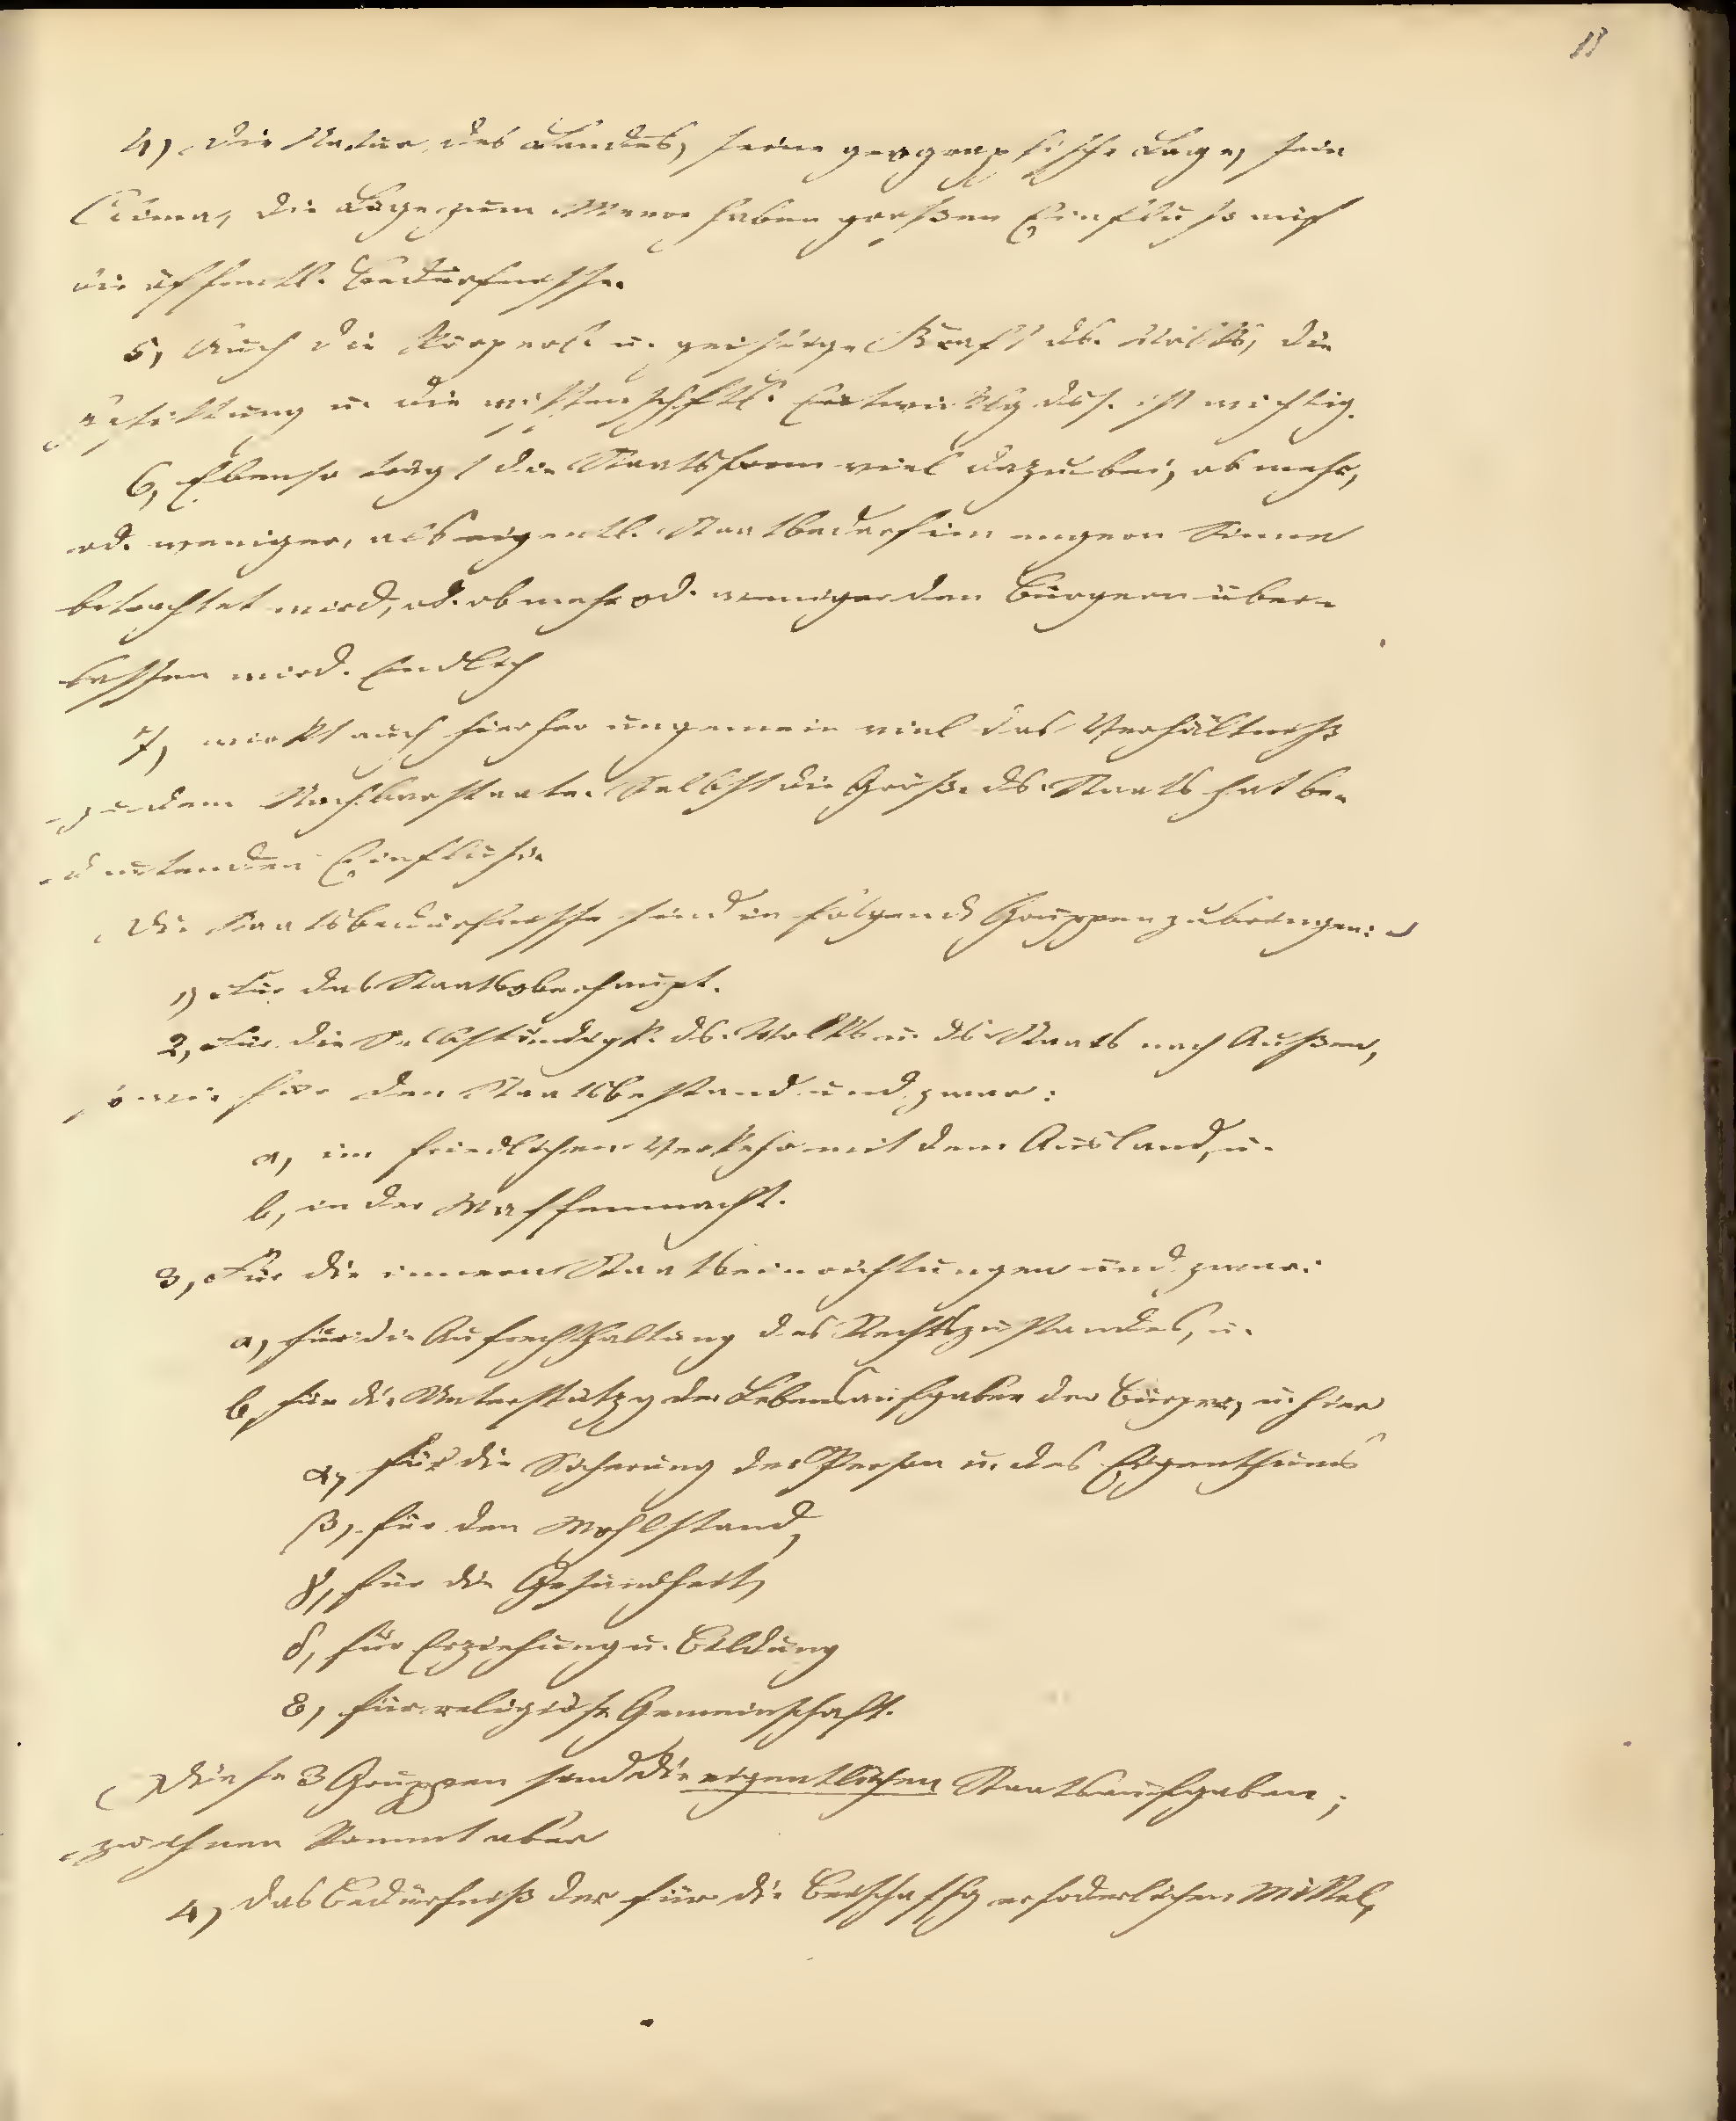 13
4, Die Natur des Landes, seine geographische Lage, sein
Clima, die Lage zum Meere haben großen Einfluß auf
die öffentl. Bedürfnisse.
5, Auch die körperl. u. geistige Kraft ds. Volks, die
Gesittung u. die wissenschftl. Entwicklg dss. ist wichtig.
6, Ebenso trägt die Staatsform viel dazu bei, ob mehr,
od. weniger, als eigentl. Staatsbedarf im engern Sinne
betrachtet wird, od. ob mehr od. weniger den Bürgern über-
lassen wird. Endlich
7, wirkt auch hierher ungemein viel das Verhältniß
zu dem Nachbarstaate. Selbst die Größe ds. Staats hat be-
deutenden Einfluß.
Die Staatsbedürfnisse sind in folgende Gruppen zu bringen:
1, Für das Staatsoberhaupt.
2, Für die Selbständigk. ds. Volks u. ds. Staats nach Außen,
sowie für den Staatsbestand und zwar:
a, im friedlichen Verkehr mit dem Ausland, u.
b, in der Waffenmacht.
3, Für die innern Staatseinrichtungen und zwar:
a, für die Aufrechthaltung des Rechtszustandes, u.
b, für die Unterstützg der Lebensaufgaben der Bürger, u. hier
α, für die Sicherung der Person u. des Eigenthums
β, für den Wohlstand,
γ, für die Gesundheit,
δ, für Erziehung u. Bildung
ε, für religiöse Gemeinschaft.
Diese 3 Gruppen sind die eigentlichen Staatsaufgaben;
zu ihnen kommt aber
4, das Bedürfniß der für die Beischaffg erforderlichen Mittel,